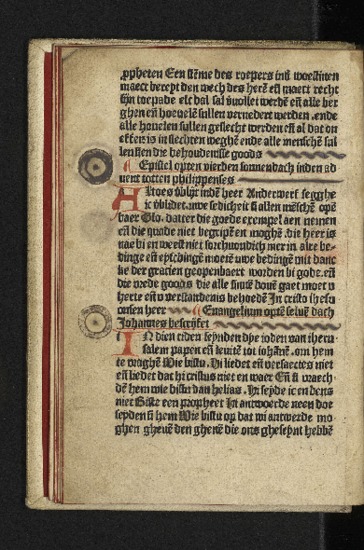 ꝓpheten Een stēme des roepers inď woestinen
maect bereyt den wech des herē eñ maect recht
sijn toepade elc dal sal ẜuollet werdē eñ alle ber
ghen eñ hoeuelē sullen vernedert werden .ende
alle houelen sullen geslecht werden eñ al dat on
effen is in slechten weghē ende alle menschē sal
len sien die behoudenisse goods
Epistel opten vierden sonnendach inden ad
uent totten philippenses
Altoes ẜblijt indē heer Anderwerf segghe
ic ẜblidet. uwe sedicheit si allen mēschē open
baer Glo. datter die goede exempel aen nemen
eñ die quade niet begripen en moghē die heer is
nae bi en weest niet sorchuoudich mer in alre be
dinge eñ eyschingē moeten uwe bedingē mit danc
ke der gracien geopenbaert worden bi gode. eñ
die vrede goods die alle sinnē bouē gaet moet u
herte eñ u verstandenis behoedē In cristo ihesu
onsen heer Ewangelium optē seluē dach
Johannes bescrijft
In dien tiden seynden die ioden van iheru
salem papen eñ leuitē tot iohānē. om hem
te vraghē Wie bistu. Hi liedet eñ versaectes niet
eñ liedet dat hi cristus niet en waer Eñ si vraech
dē hem wie bistu dan helias. Hi seyde ic en bens
niet Bistu een propheet Hi antwoerde neen doe
seyden si hem Wie bistu op dat wi antwerde mo
ghen gheuē den ghenē die ons ghesent hebbē